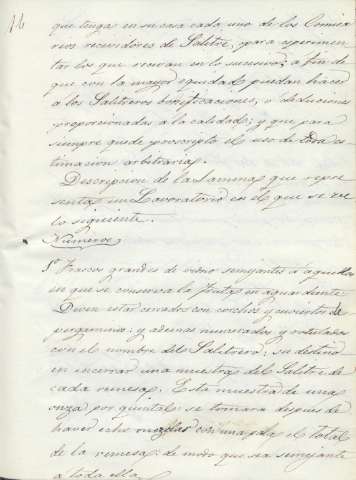 16
que tenga en su casa cada uno de los Comisa
rios recividores de Salitre, para esperimen
tar los que recivan en lo sucesivo, a fin de
que con la mayor equidad puedan hacer
a los Salitreros bonificaciones, o deduciones
proporcionadas a la calidad; y que para
siempre quede proscripto el uso de toda es
timacion arbitraria.
Descripcion de la Lamina que repre
senta un Lavoratorio en el que se ve
lo siguiente.
Numeros
1º Frascos grandes de vidrio semejantes a aquellos
en que se conserva la fruta en aguardiente
Deven estar cerrados con corchos y cuviertos de
pergamino: y ademas numerados y rotulados
con el nombre del Salitrero; su destino
en encerrar una muestra del Salitre de
cada remesa. Esta muestra de una
onza por quintal se tomara despues de
haver echo mezclar con una pala el total
de la remesa: de modo que sea semejante
a toda ella